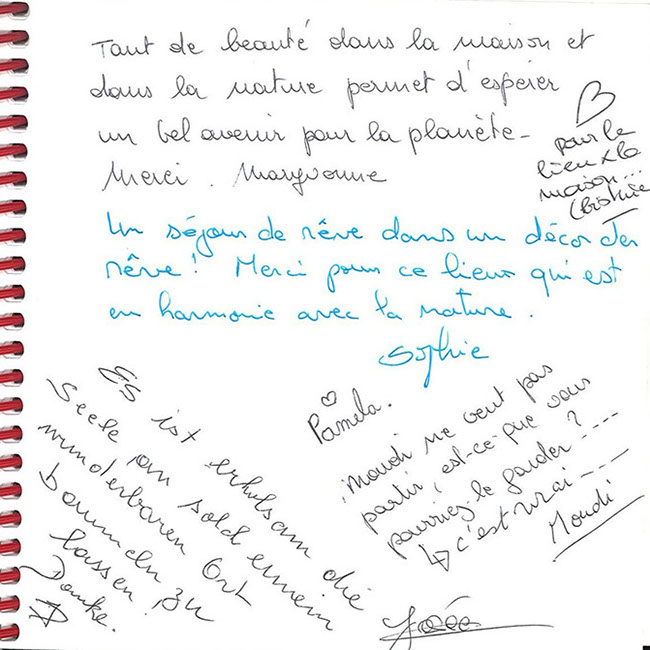 Tant de beauté dans la maison et
dans la nature permet d'espérer
un bel avenir pour la planète -
Merci. Maryvonne
pour le
lieu x la
maison...
Christine
Un séjour de rêve dans un décor de
rêve! Merci pour ce lieux qui est
en harmonie avec la nature.
Sophie
Es ist erholsam die
Seele an solch einem
wunderbaren Ort
baumeln zu
lassen.
Danke.
Pamela.
Moudi ne veut pas
partir, est-ce que vous
pourriez le garder ?
c'est vrai ---
Moudi
Josée